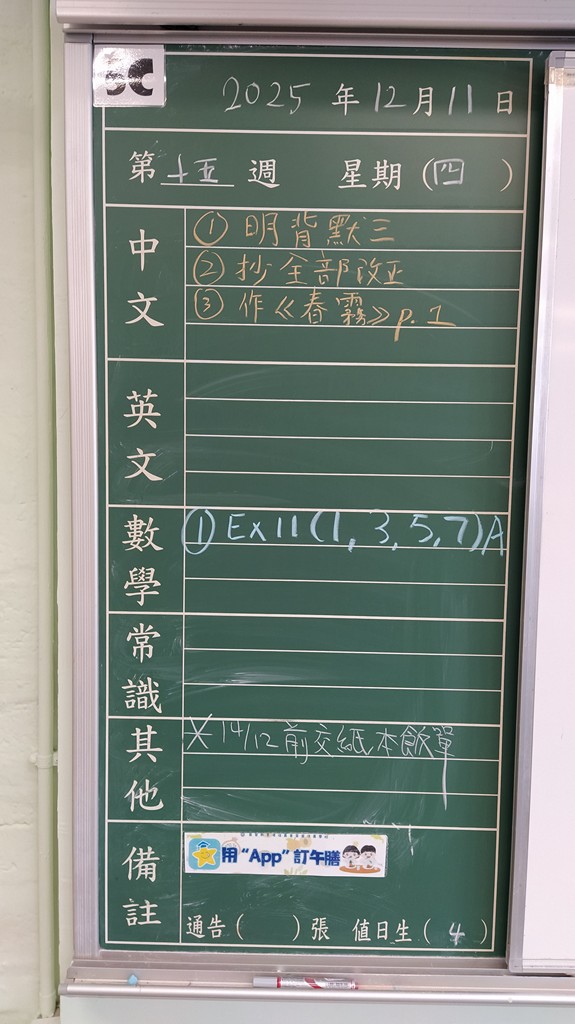 2025 年 12 月 11 日
第 十五 週 星期 (四)
中文
① 明背默三
② 抄全部改正
③ 作《春霧》p.1
英文
數學
① Ex 11 (1, 3, 5, 7) A
常識
其他
* 14/12 前交紙本飯單
備註
用“App”訂午膳
通告 ( ) 張 值日生 ( 4 )